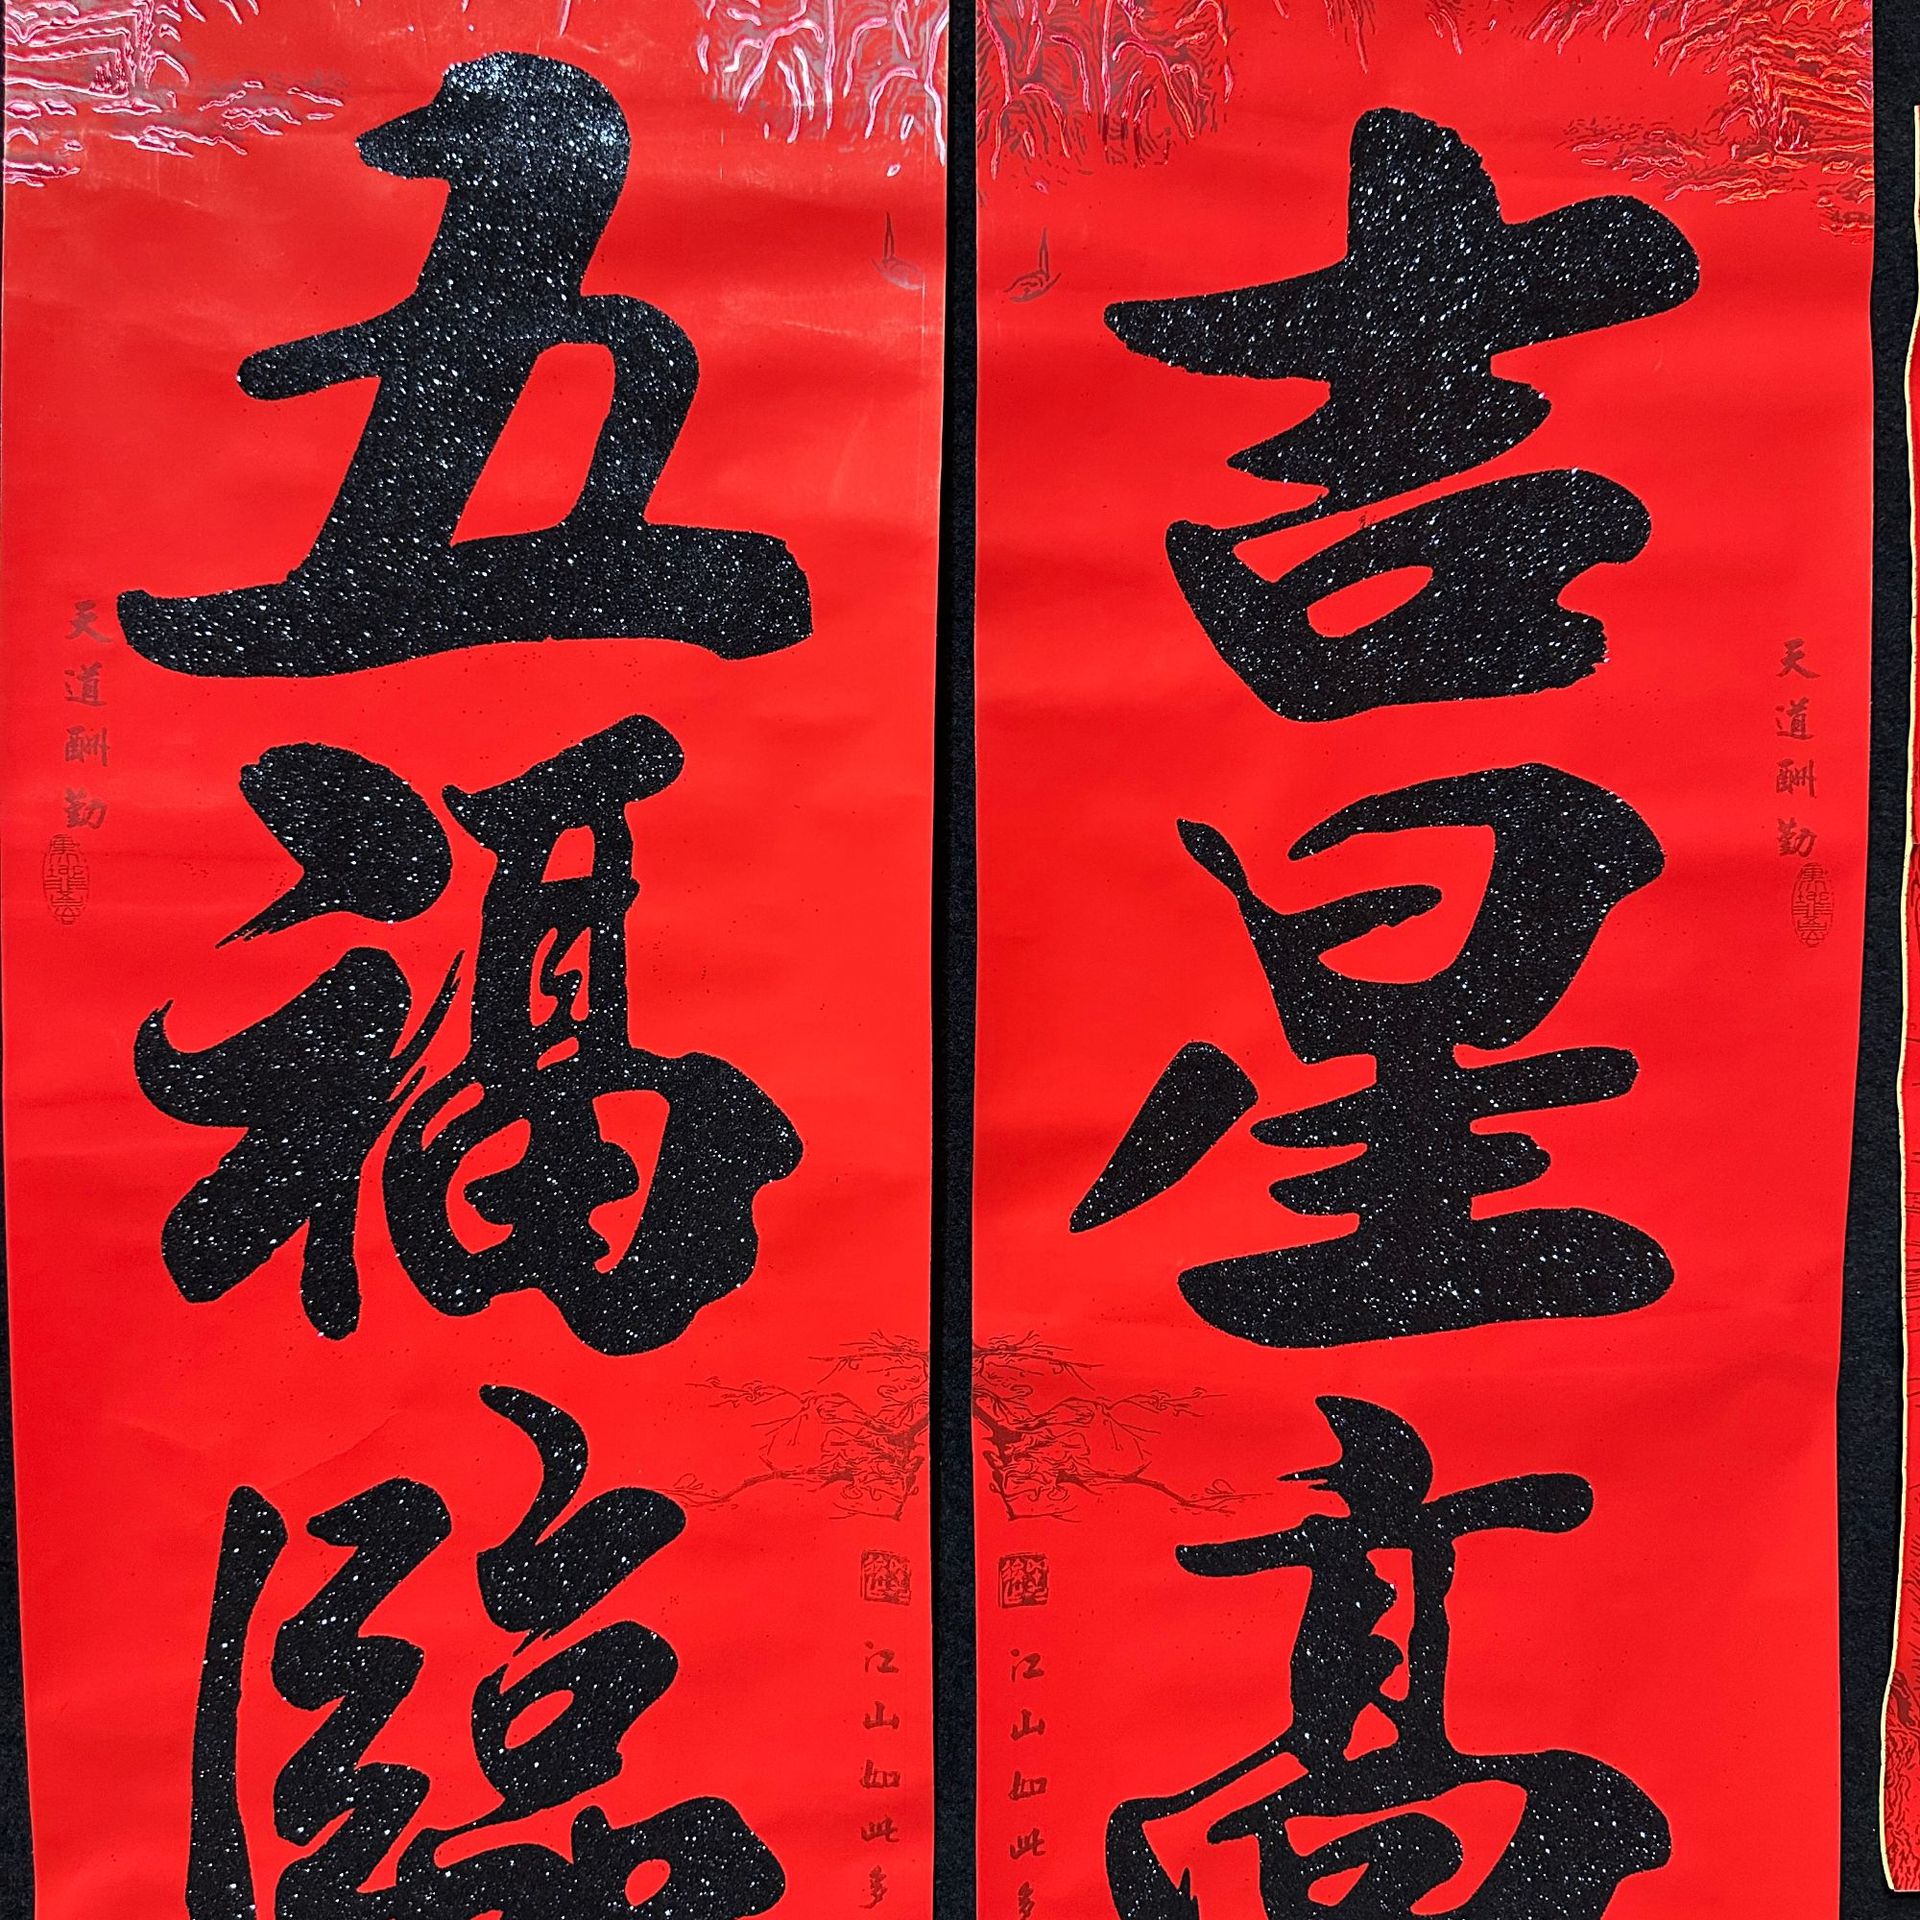 吉星高
五福臨
天道酬勤
天道酬勤
江山如此多
江山如此多